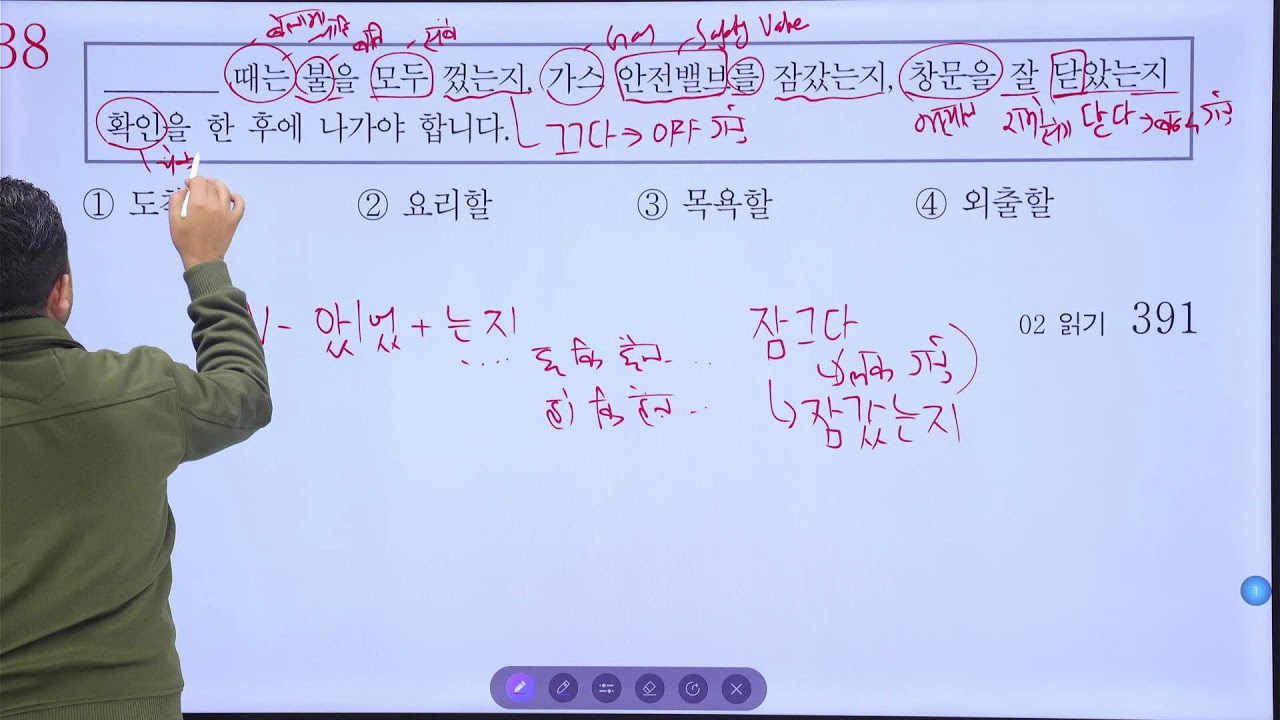 Gas Safety Valve
38
때는 불을 모두 껐는지, 가스 안전밸브를 잠갔는지, 창문을 잘 닫았는지
확인을 한 후에 나가야 합니다.
끄다 → OFF गर्नु
닫다 →
गर्नु
① 도착
② 요리할
③ 목욕할
④ 외출할
V - 았/었 + 는지
छ कि छैन
हो कि होइन
잠그다
गर्नु
잠갔는지
02 읽기 391
1